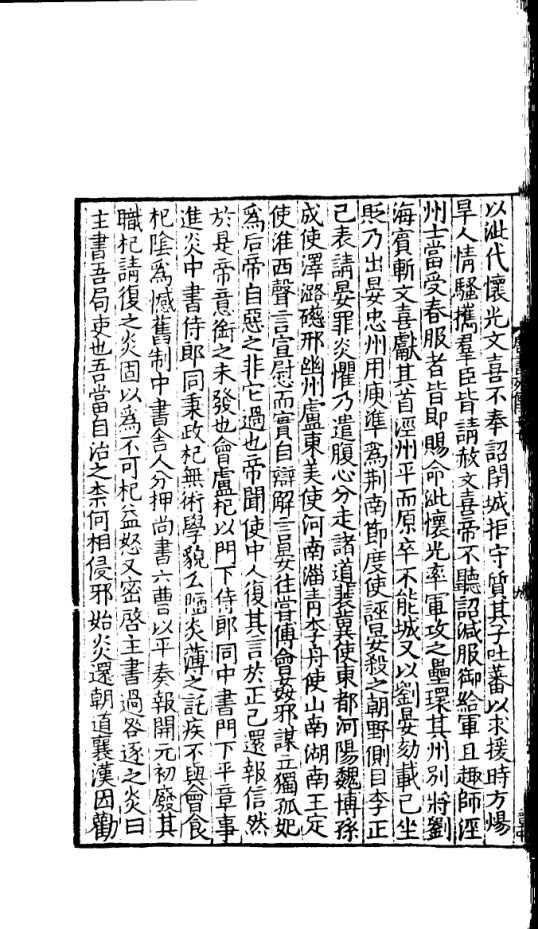 以泚代懷光文喜不奉詔閉城拒守質其子吐蕃以求援時方煬
旱人情騷攜羣臣皆請赦文喜帝不聽詔減服御給軍且趣師涇
州士當受春服者皆即賜命泚懷光率軍攻之壘環其州別將劉
海賓斬文喜獻其首涇州平而原卒不能城又以劉晏劾載己坐
貶乃出晏忠州用庾準爲荆南節度使誣晏殺之朝野側目李正
己表請晏罪炎懼乃遣腹心分走諸道裴兾使東都河陽魏博孫
成使澤潞礠邢幽州盧東美使河南淄青李舟使山南湖南王定
使淮西聲言宣慰而實自辯解言晏往嘗傅會姦邪謀立獨孤妃
爲后帝自惡之非它過也帝聞使中人復其言於正己還報信然
於是帝意銜之未發也會盧杞以門下侍郎同中書門下平章事
進炎中書侍郎同秉政杞無術學貌么陋炎薄之託疾不與會食
杞陰爲憾舊制中書舍人分押尚書六曹以平奏報開元初廢其
職杞請復之炎固以爲不可杞益怒又密啓主書過咎逐之炎曰
主書吾局吏也吾當自治之柰何相侵邪始炎還朝道襄漢因勸